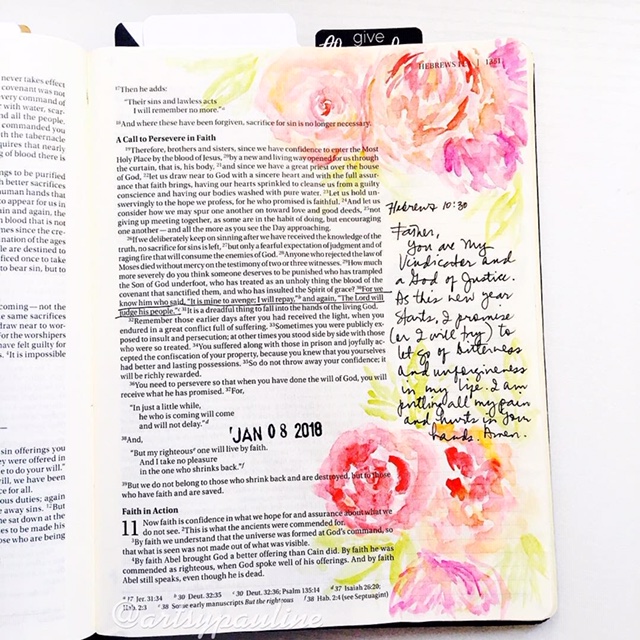 never takes effect
covenant was not
every command of
with water, scar-
and all the people.
commanded you
with the tabernacle
requires that nearly
of blood there is
ngs to be purified
h better sacrifices
human hands that
to appear for us in
ain and again, the
blood that is not
mes since the cre-
nation of the ages
le are destined to
ficed once to take
to bear sin, but to
coming — not the
e same sacrifices
draw near to wor-
For the worshipers
have felt guilty for
⁴It is impossible
sin offerings you
hey were offered in
e to do your will.”
ill, we have been
ce for all.
ous duties; again
away sins. ¹²But
e sat down at the
es to be made his
ose who are being
give
HEBREWS 11:4 | 1281
¹⁷Then he adds:
“Their sins and lawless acts
I will remember no more.”
¹⁸And where these have been forgiven, sacrifice for sin is no longer necessary.
A Call to Persevere in Faith
¹⁹Therefore, brothers and sisters, since we have confidence to enter the Most
Holy Place by the blood of Jesus, ²⁰by a new and living way opened for us through
the curtain, that is, his body, ²¹and since we have a great priest over the house
of God, ²²let us draw near to God with a sincere heart and with the full assur-
ance that faith brings, having our hearts sprinkled to cleanse us from a guilty
conscience and having our bodies washed with pure water. ²³Let us hold un-
swervingly to the hope we profess, for he who promised is faithful. ²⁴And let us
consider how we may spur one another on toward love and good deeds, ²⁵not
giving up meeting together, as some are in the habit of doing, but encouraging
one another — and all the more as you see the Day approaching.
²⁶If we deliberately keep on sinning after we have received the knowledge of the
truth, no sacrifice for sins is left, ²⁷but only a fearful expectation of judgment and of
raging fire that will consume the enemies of God. ²⁸Anyone who rejected the law of
Moses died without mercy on the testimony of two or three witnesses. ²⁹How much
more severely do you think someone deserves to be punished who has trampled
the Son of God underfoot, who has treated as an unholy thing the blood of the
covenant that sanctified them, and who has insulted the Spirit of grace? ³⁰For we
know him who said, “It is mine to avenge; I will repay,” and again, “The Lord will
judge his people.” ³¹It is a dreadful thing to fall into the hands of the living God.
³²Remember those earlier days after you had received the light, when you
endured in a great conflict full of suffering. ³³Sometimes you were publicly ex-
posed to insult and persecution; at other times you stood side by side with those
who were so treated. ³⁴You suffered along with those in prison and joyfully ac-
cepted the confiscation of your property, because you knew that you yourselves
had better and lasting possessions. ³⁵So do not throw away your confidence; it
will be richly rewarded.
³⁶You need to persevere so that when you have done the will of God, you will
receive what he has promised. ³⁷For,
“In just a little while,
he who is coming will come
and will not delay.”ᵈ
³⁸And,
“But my righteousᵉ one will live by faith.
And I take no pleasure
in the one who shrinks back.”ᶠ
³⁹But we do not belong to those who shrink back and are destroyed, but to those
who have faith and are saved.
JAN 08 2018
Faith in Action
11 Now faith is confidence in what we hope for and assurance about what we
do not see. ²This is what the ancients were commended for.
³By faith we understand that the universe was formed at God’s command, so
that what is seen was not made out of what was visible.
⁴By faith Abel brought God a better offering than Cain did. By faith he was
commended as righteous, when God spoke well of his offerings. And by faith
Abel still speaks, even though he is dead.
ᵃ 17 Jer. 31:34 ᵇ 30 Deut. 32:35 ᶜ 30 Deut. 32:36; Psalm 135:14 ᵈ 37 Isaiah 26:20;
Hab. 2:3 ᵉ 38 Some early manuscripts But the righteous ᶠ 38 Hab. 2:4 (see Septuagint)
Hebrews 10:30
Father,
You are my
Vindicator and
a God of Justice.
As this new year
starts, I promise
(or I will try) to
let go of bitterness
and unforgiveness
in my life. I am
putting all my pain
and hurts in Your
hands. Amen.
@artsypauline